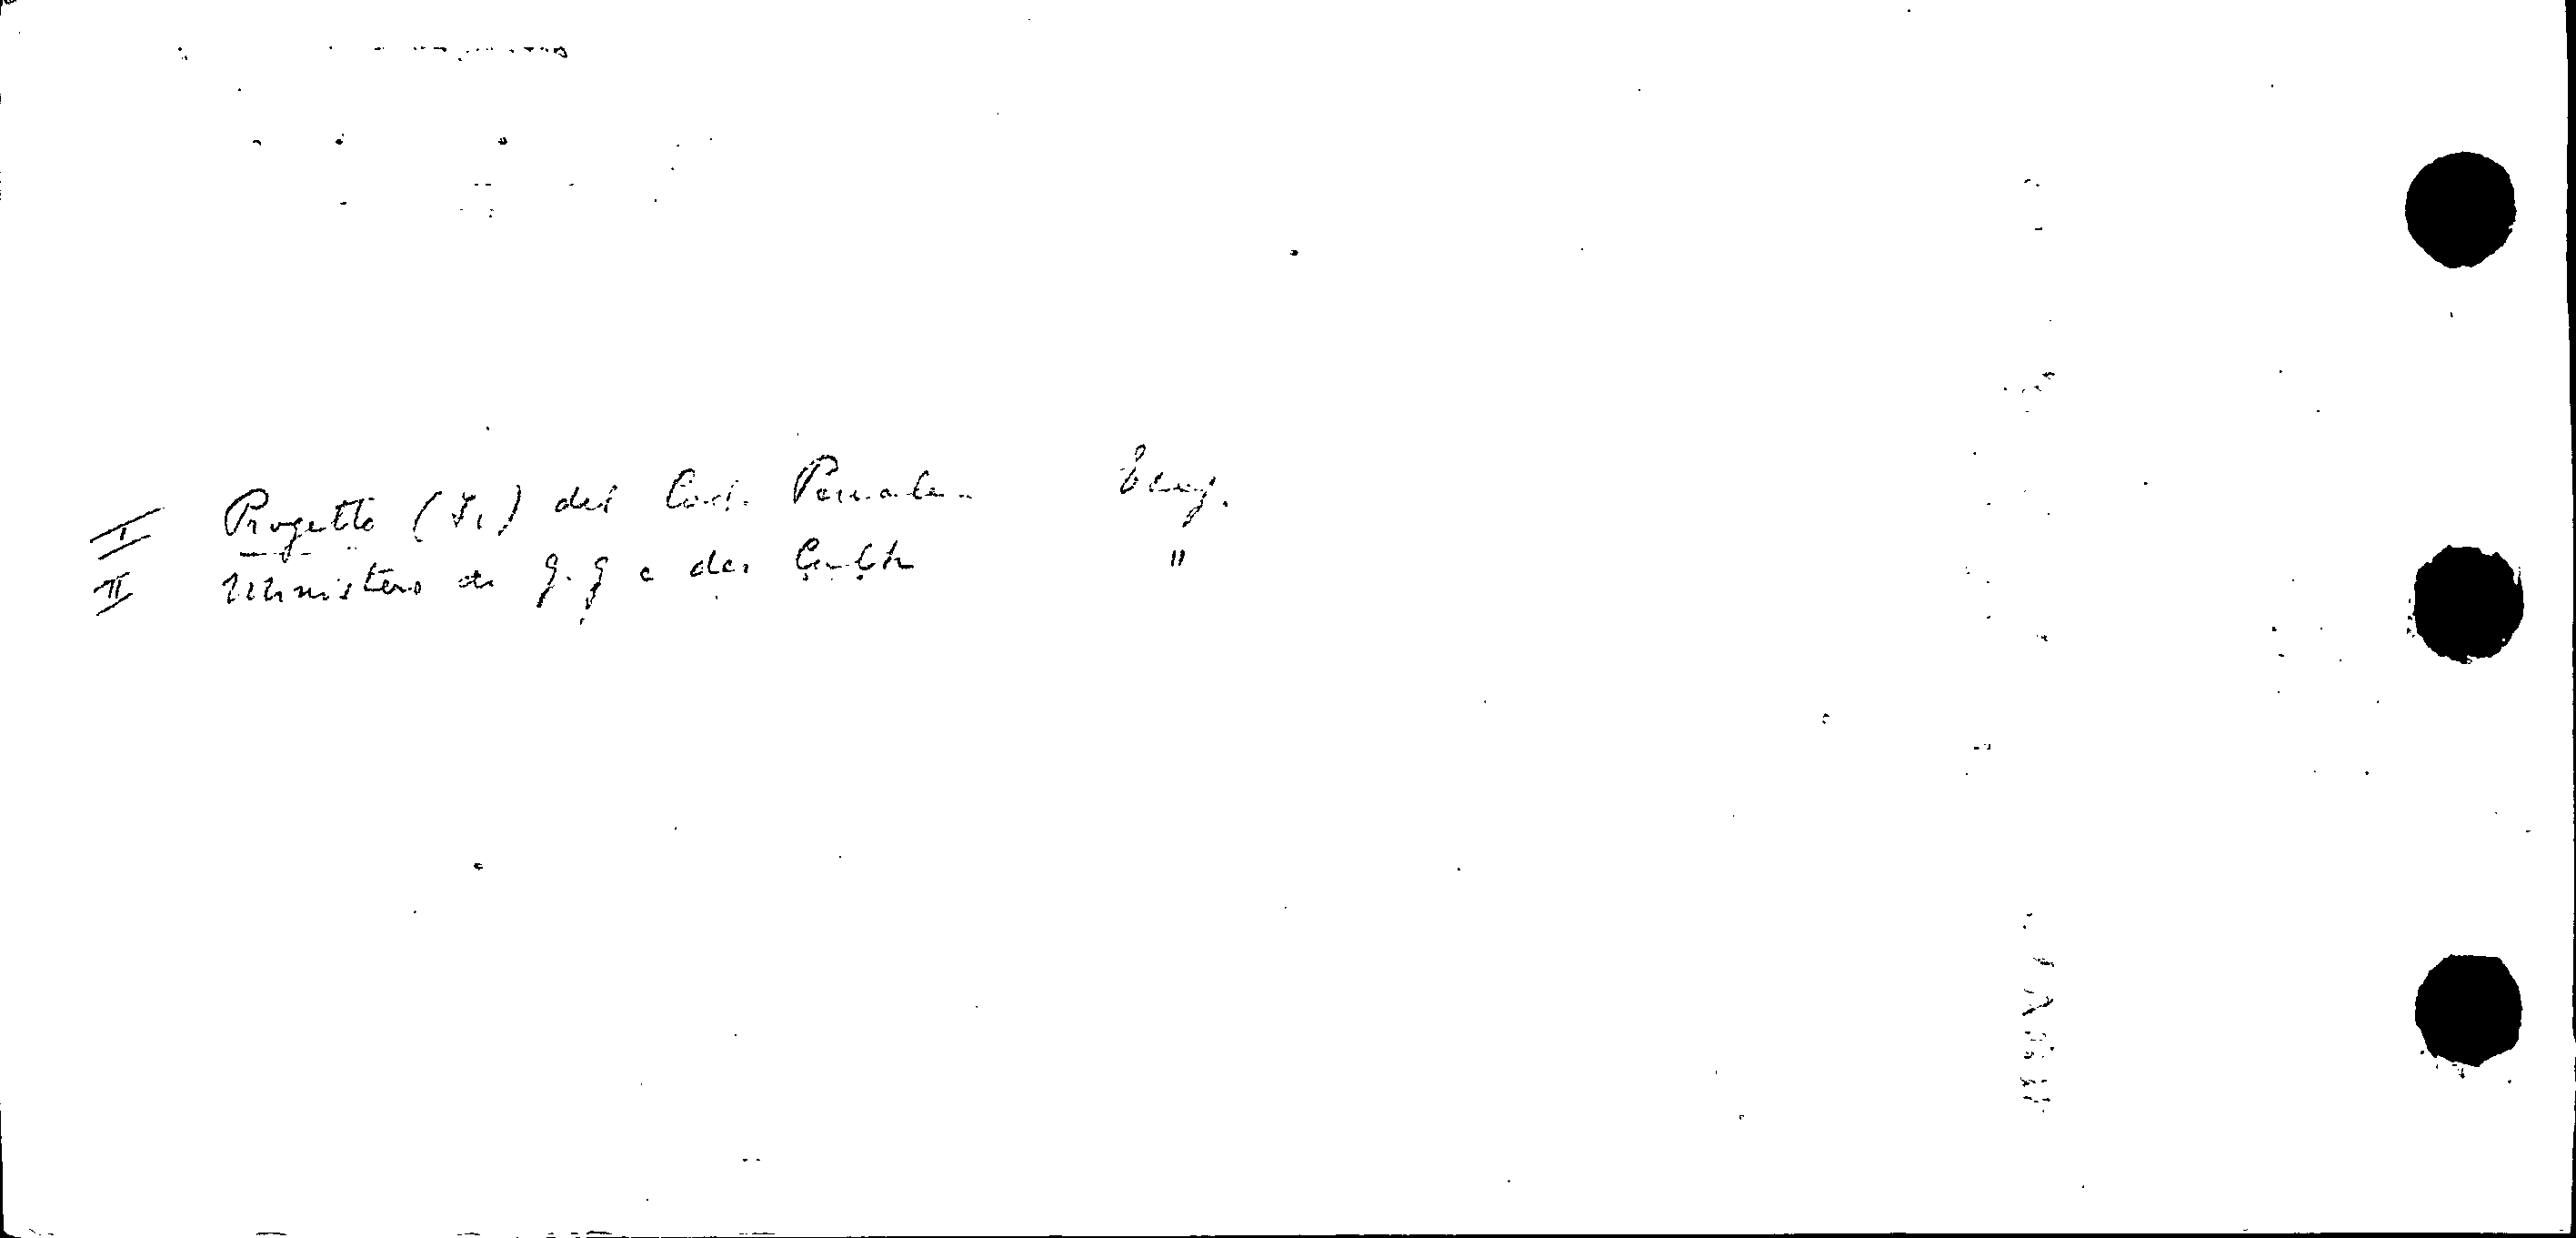 I Progetto ( ) del Cod. Penale
II Ministero di G. G e dei Culti "